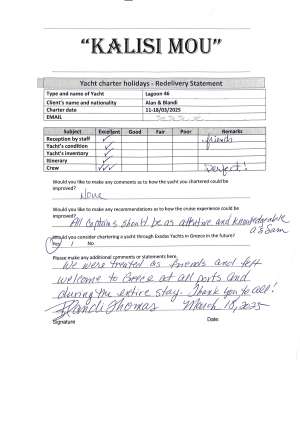 "KALISI MOU"
Yacht charter holidays - Redelivery Statement
Type and name of Yacht Lagoon 46
Client's name and nationality Alan & Blandi
Charter date 11-18/03/2025
EMAIL
Subject Excellent Good Fair Poor Remarks
Reception by staff ✓ friends
Yacht's condition ✓
Yacht's inventory ✓
Itinerary ✓
Crew ✓✓✓ Perfect!
Would you like to make any comments as to how the yacht you chartered could be
improved?
None
Would you like to make any recommendations as to how the cruise experience could be
improved?
All Captains should be as attentive and knowledgeable
as Sam
Would you consider chartering a yacht through Exadas Yachts in Greece in the future?
Yes / No
Please make any additional comments or statements here.
We were treated as friends and felt
welcome to Greece at all ports and
during the entire stay. Thank you to all!
Blandi Thomas March 18, 2025
Signature Date: